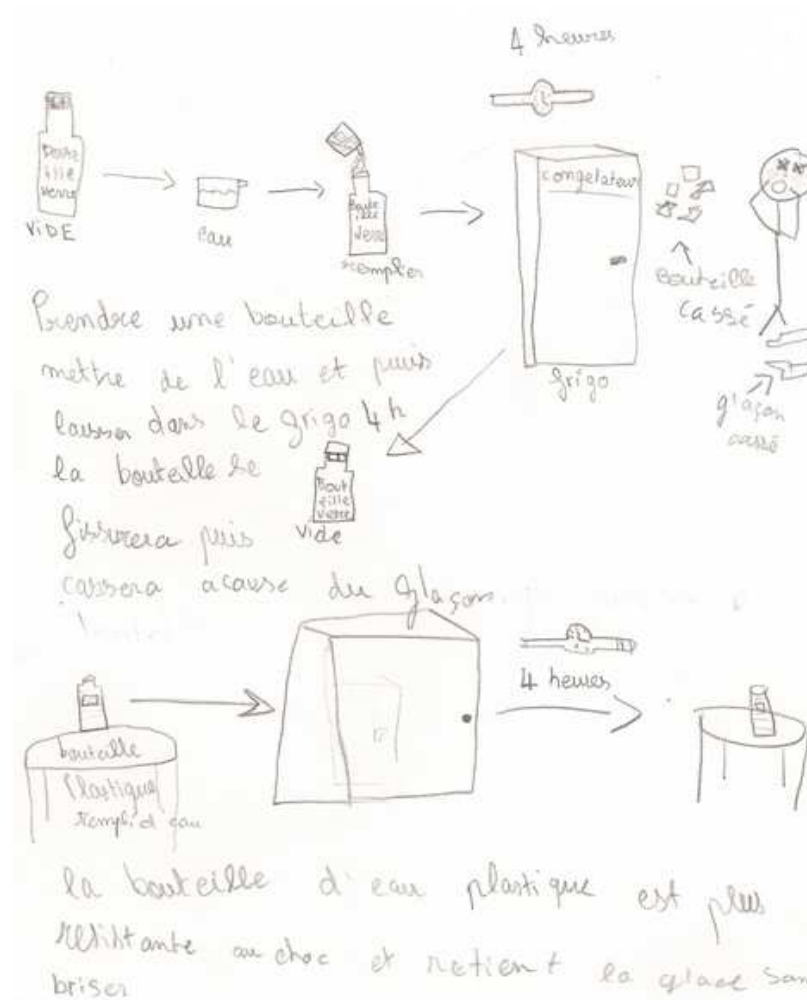 4 heures
Boute
ille
verre
VIDE
eau
Boute
ille
verre
remplir
congelateur
Bouteille
cassé
frigo
glaçon
cassé
Prendre une bouteille
mettre de l'eau et puis
laisser dans le frigo 4h
la bouteille se
fissurera puis
cassera acause du glaçon
Bout
eille
verre
vide
4 heures
bouteille
Plastique
rempli d'eau
la bouteille d'eau plastique est plus
résistante au choc et retient la glace san
briser